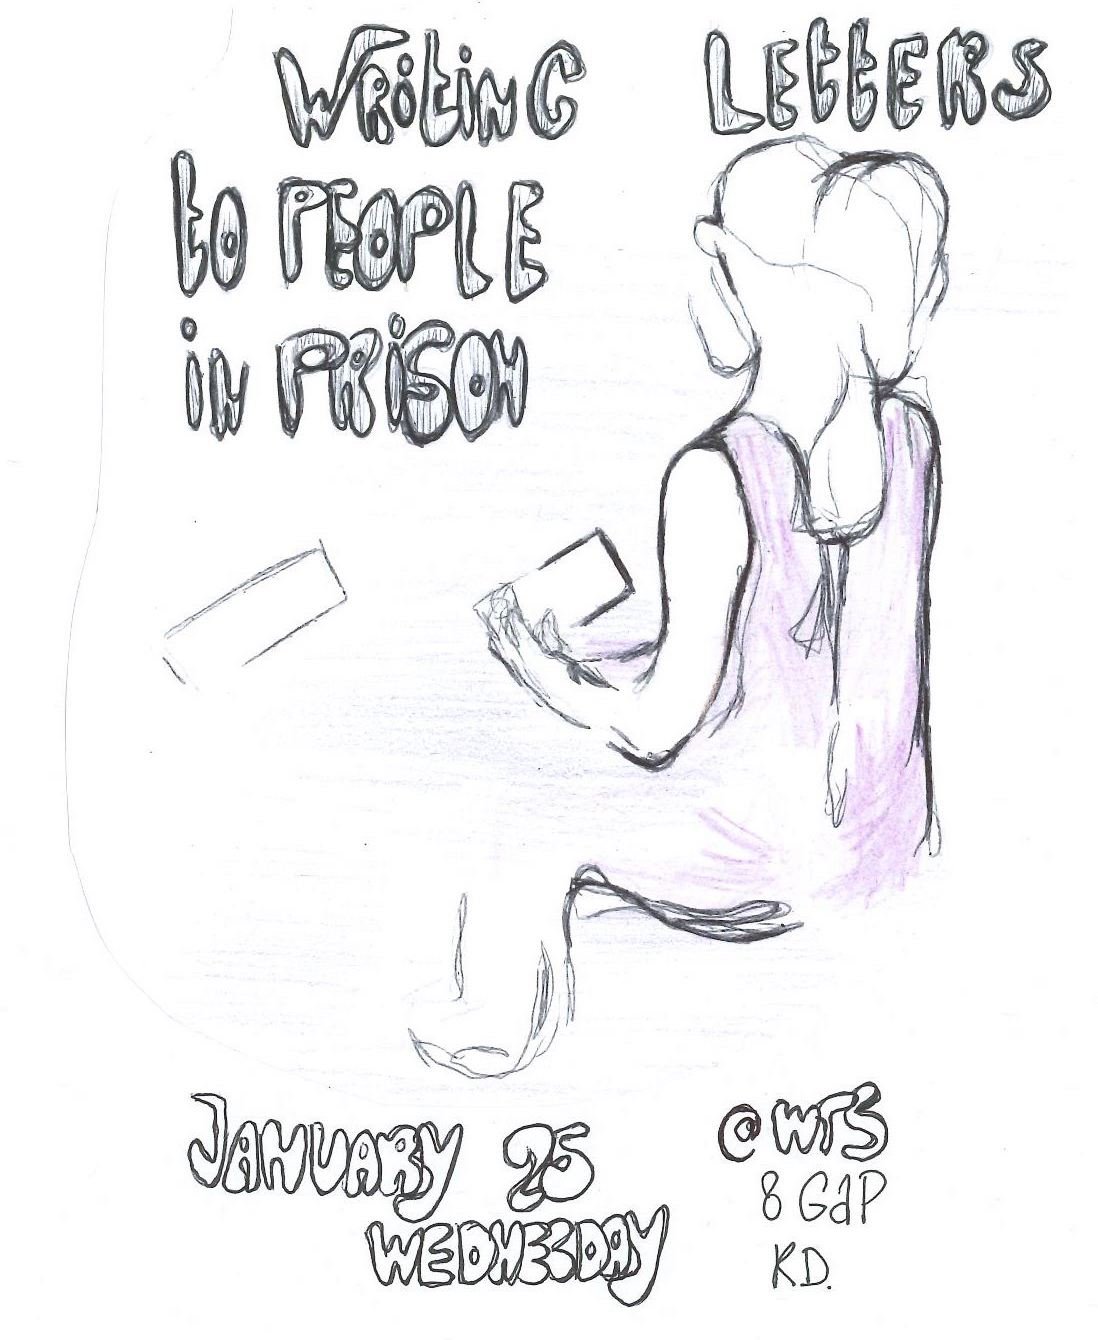 WRitiNG LEttERS
to PEOPLE
iN PRiSON
JANUARY 25
WEDNESDAY
@WTS
8 GdP
KD.